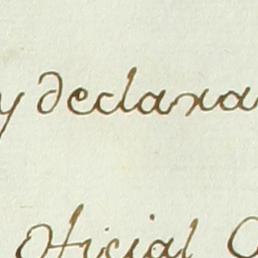 y declara
Oficial